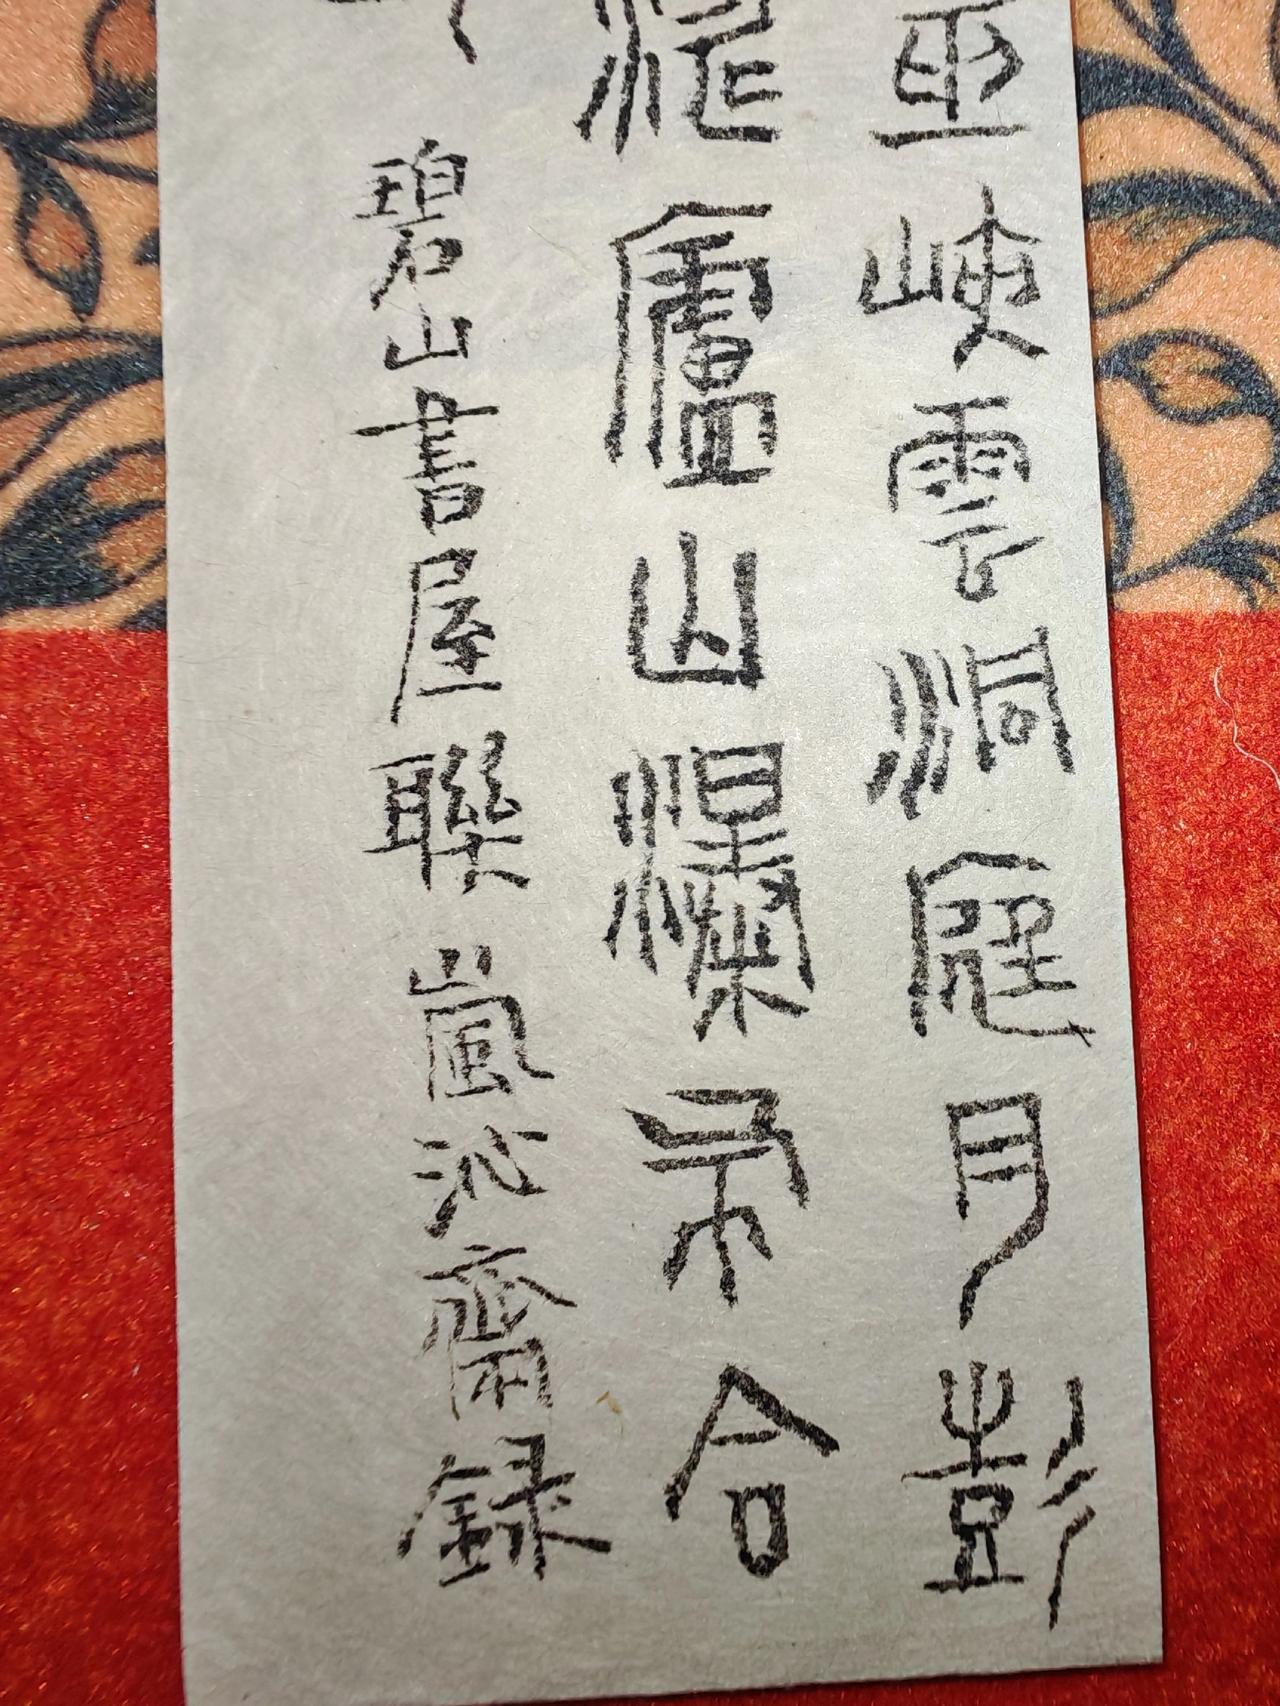 巫峽雲洞庭月彭
廬山瀑布合
碧山書屋聯 嵐沁齋録